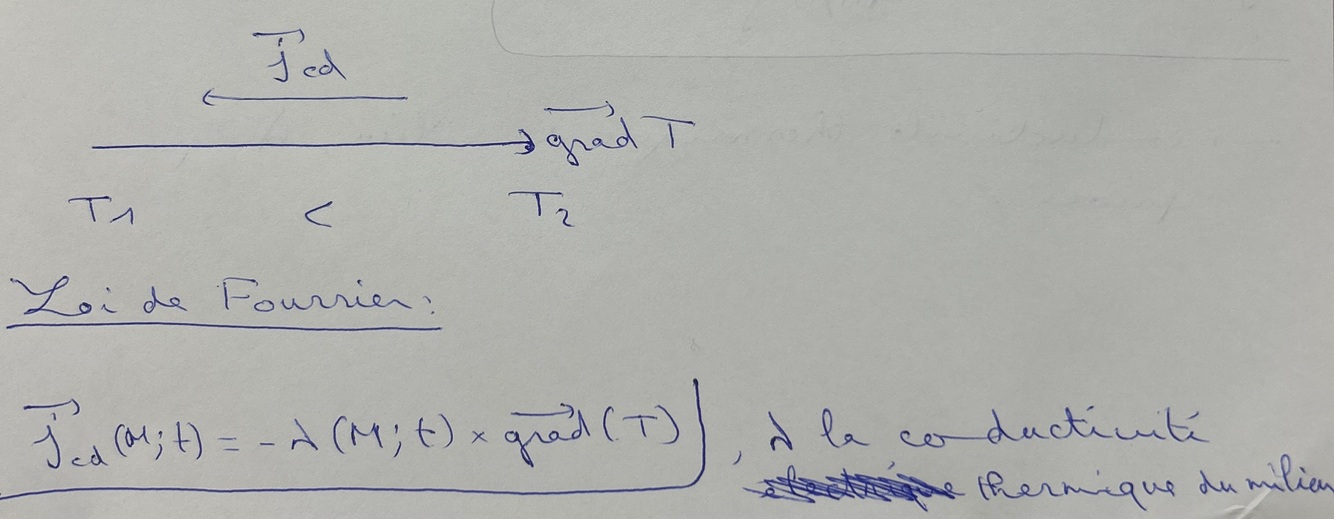 j⃗cd
grad⃗ T
T1 < T2
Loi de Fourrier :
j⃗cd (M; t) = - λ (M; t) × grad⃗ (T) , λ la conductivité
thermique du milieu